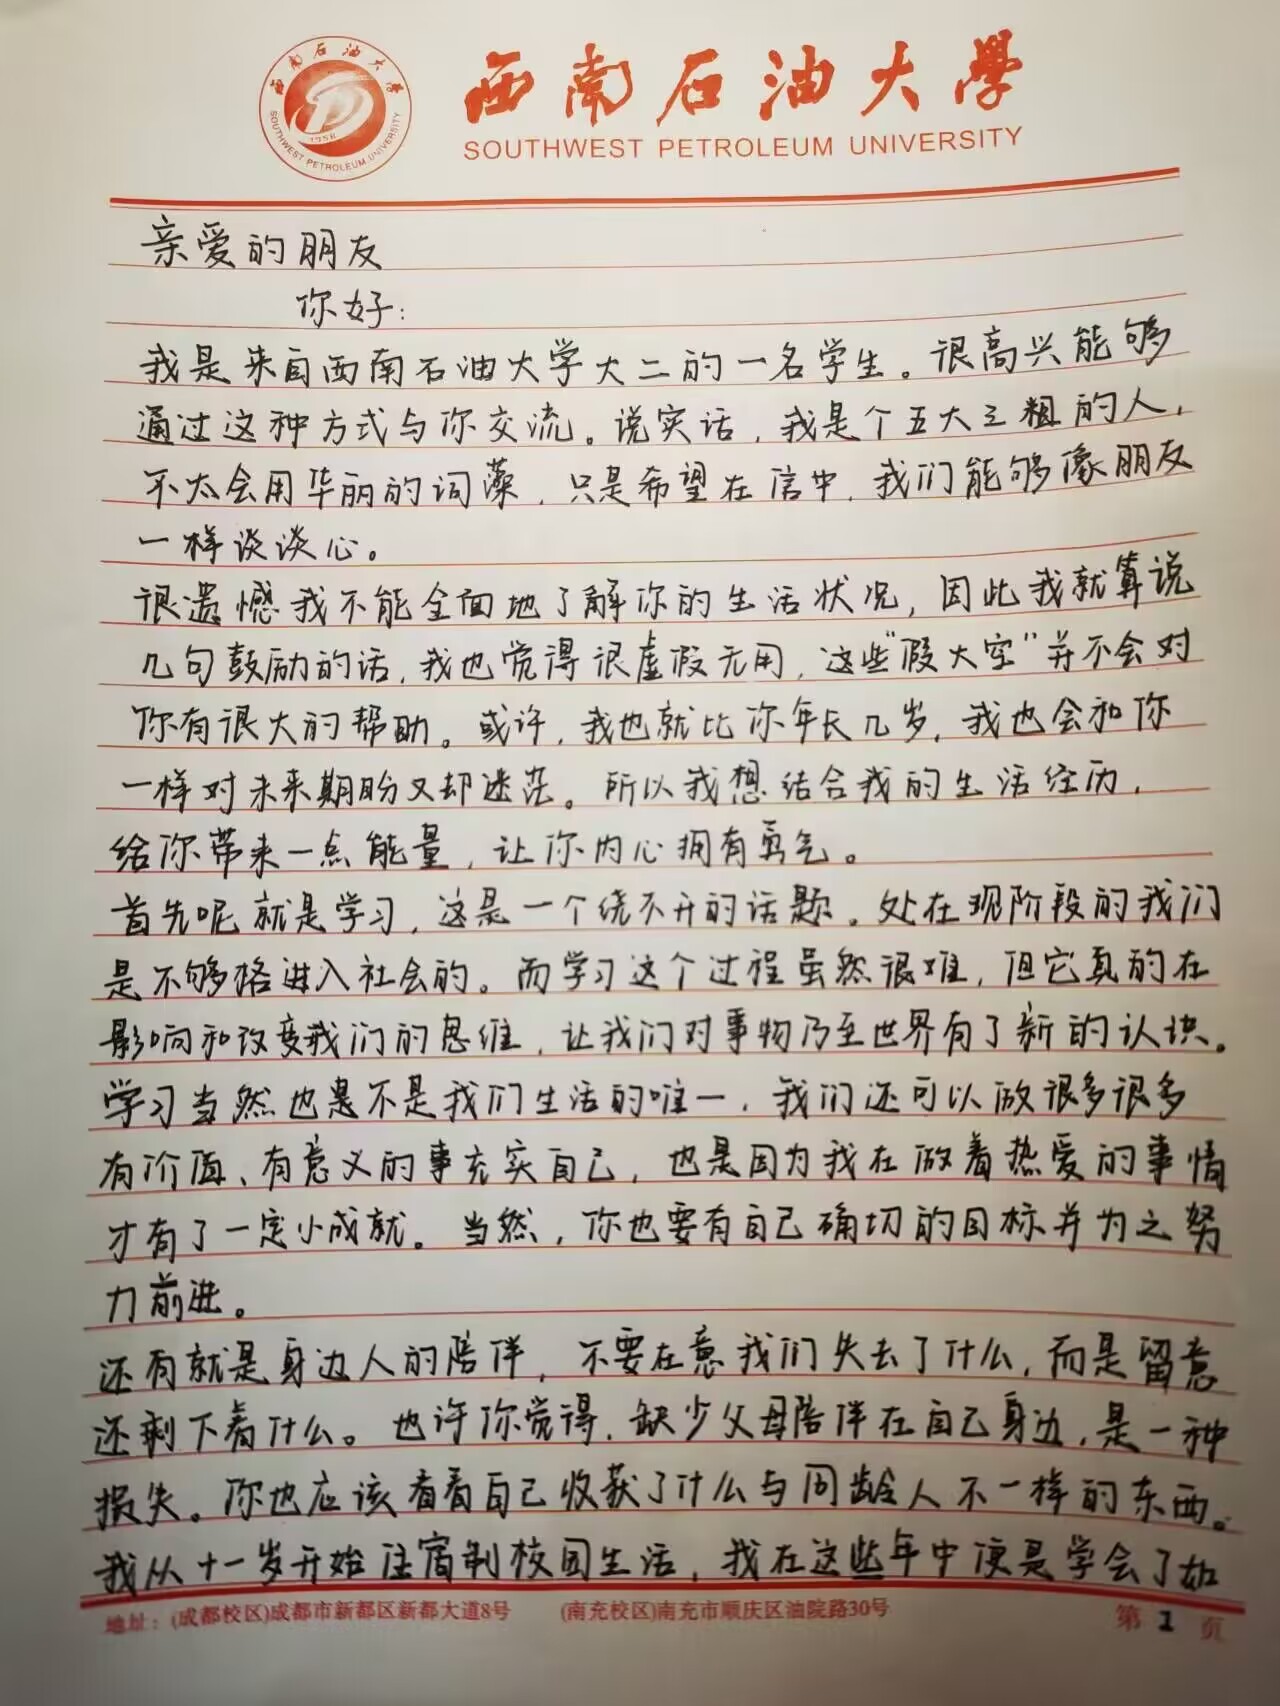 西南石油大学
SOUTHWEST PETROLEUM UNIVERSITY
西南石油大学
1958
SOUTHWEST PETROLEUM UNIVERSITY
亲爱的朋友
你好:
我是来自西南石油大学大二的一名学生。很高兴能够
通过这种方式与你交流。说实话,我是个五大三粗的人,
不太会用华丽的词藻,只是希望在信中,我们能够像朋友
一样谈谈心。
很遗憾我不能全面地了解你的生活状况,因此我就算说
几句鼓励的话,我也觉得很虚假无用,这些“假大空”并不会对
你有很大的帮助。或许,我也就比你年长几岁,我也会和你
一样对未来期盼又却迷茫。所以我想结合我的生活经历,
给你带来一点能量,让你内心拥有勇气。
首先呢就是学习,这是一个绕不开的话题。处在现阶段的我们
是不够格进入社会的。而学习这个过程虽然很难,但它真的在
影响和改变我们的思维,让我们对事物乃至世界有了新的认识。
学习当然也是不是我们生活的唯一,我们还可以做很多很多
有价值、有意义的事充实自己,也是因为我在做着热爱的事情
才有了一定小成就。当然,你也要有自己确切的目标并为之努
力前进。
还有就是身边人的陪伴,不要在意我们失去了什么,而是留意
还剩下着什么。也许你觉得,缺少父母陪伴在自己身边,是一种
损失。你也应该看看自己收获了什么与同龄人不一样的东西。
我从十一岁开始住宿制校园生活,我在这些年中便是学会了如
地址:(成都校区)成都市新都区新都大道8号 (南充校区)南充市顺庆区油院路30号 第1页